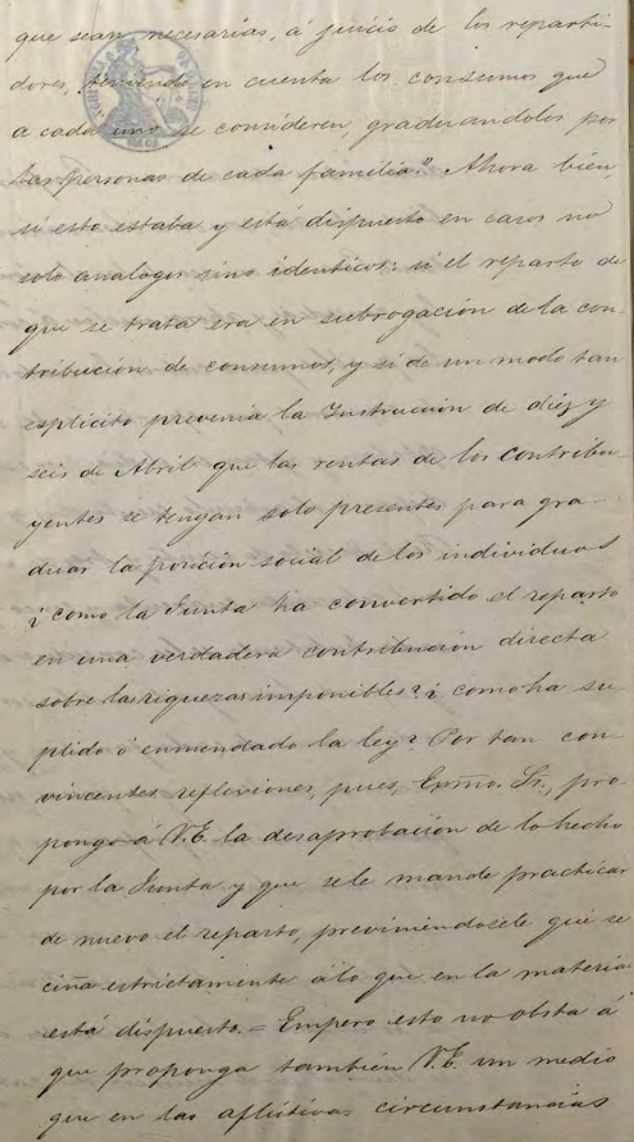 que sean necesarias, á juicio de los reparti-
dores, teniendo en cuenta los consumos que
a cada uno se consideren, graduandolos por
las personas de cada familia." Ahora bien,
si esto estaba y está dispuesto en casos no
solo analogos sino identicos: si el reparto de
que se trata era en subrogación de la con-
tribución de consumos, y si de un modo tan
esplicito prevenia la Instrucción de diez y
seis de Abril que las rentas de los contribu-
yentes se tengan solo presentes para gra-
duar la posición social de los individuos
¿como la Junta ha convertido el reparto
en una verdadera contribución directa
sobre las riquezas imponibles? ¿como ha su-
plido ó enmendado la ley? Por tan con-
vincentes reflexiones, pues, Exmo. Sr., pro-
pongo á V.E. la desaprobación de lo hecho
por la Junta y que se le mande practicar
de nuevo el reparto, previniendosele que se
ciña estrictamente á lo que en la materia
está dispuesto. = Empero esto no obsta á
que proponga también V.E. un medio
que en las aflictivas circunstancias